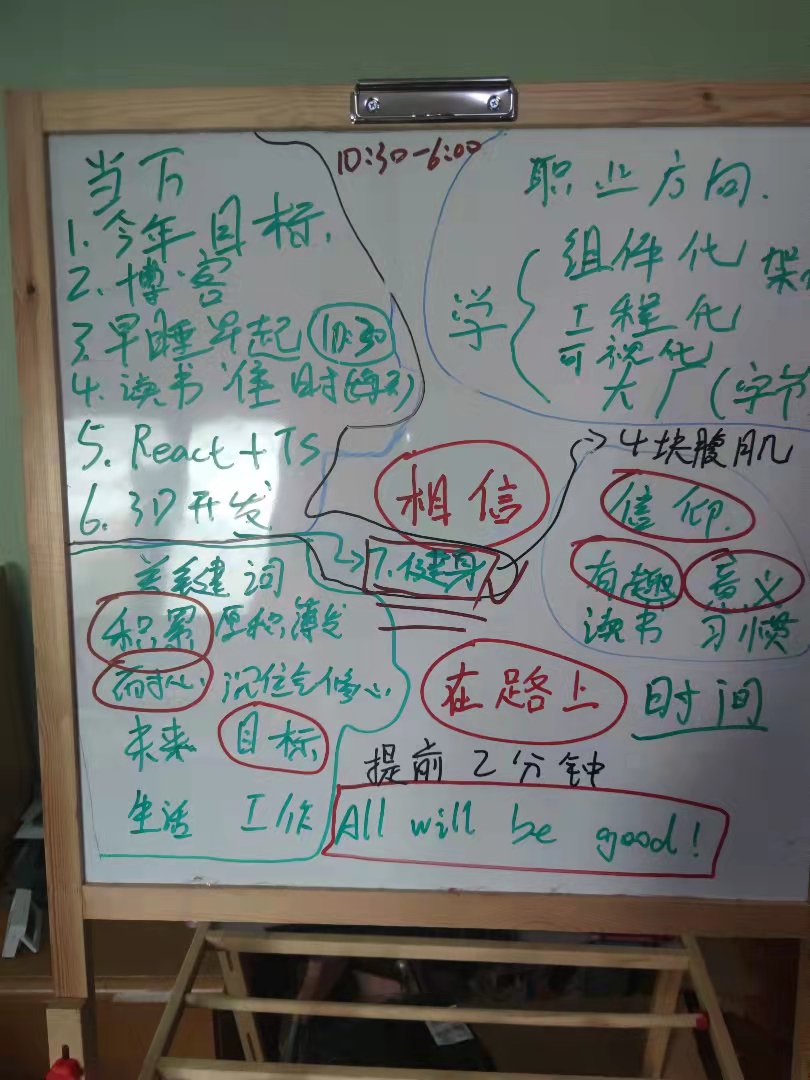 10:30-6:00
当下
1. 今年目标.
2. 博客
3. 早睡早起 10:30
4. 读书 准时(每天)
5. React+TS
6. 3D开发
7. 健身
4块腹肌
职业方向.
学
组件化
架构
工程化
可视化
大厂(字节
相信
信仰.
有趣 意义
读书 习惯
关键词
积累 厚积薄发
耐心 沉住气修心
未来 目标
生活 工作
在路上
时间
提前2分钟
All will be good!